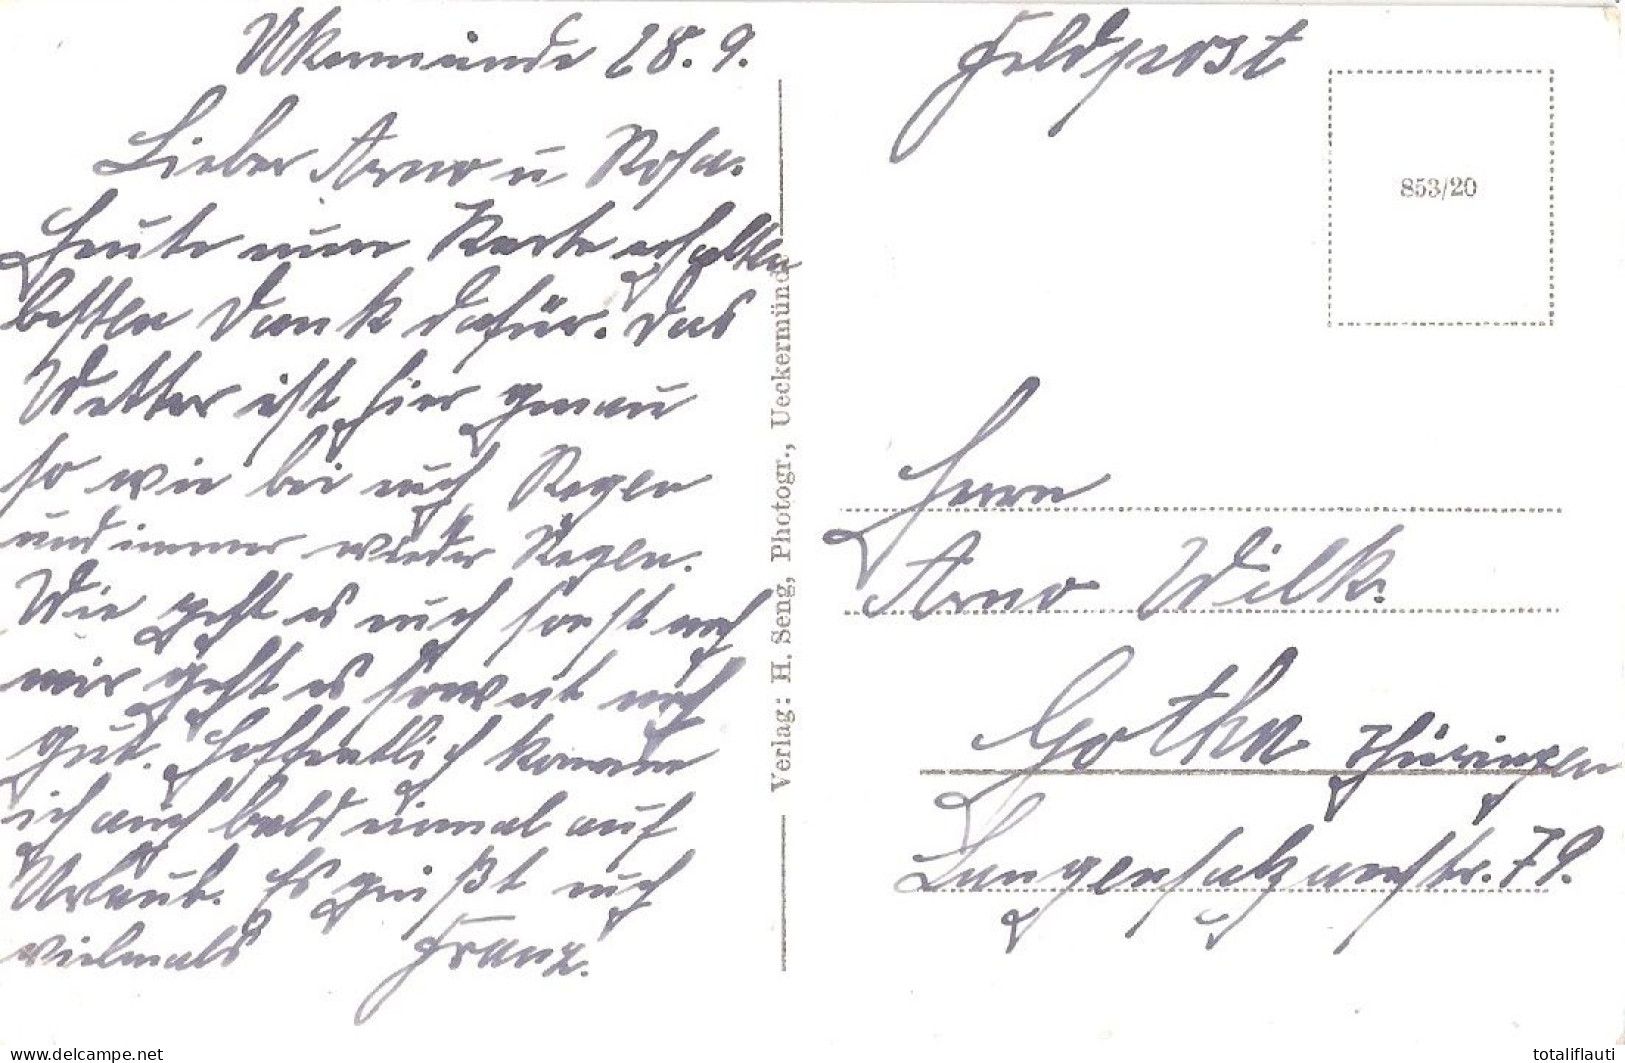 Ukermünde 28.9.
Lieber Arno u Rosa.
Heute eure Karte erhalten
besten Dank dafür. Das
Wetter ist hier genau
so wie bei euch Regen
und immer wieder Regen.
Wie geht es euch sonst noch
mir geht es soweit noch
gut. Hoffentlich komme
ich auch bald einmal auf
Urlaub. Es grüßt euch
vielmals Franz.
Verlag: H. Seng, Photogr., Ueckermünde
Feldpost
853/20
Herrn
Arno Wilk.
Gotha Thüringen
Langensalzaerstr. 79.
totaliflauti
www.delcampe.net